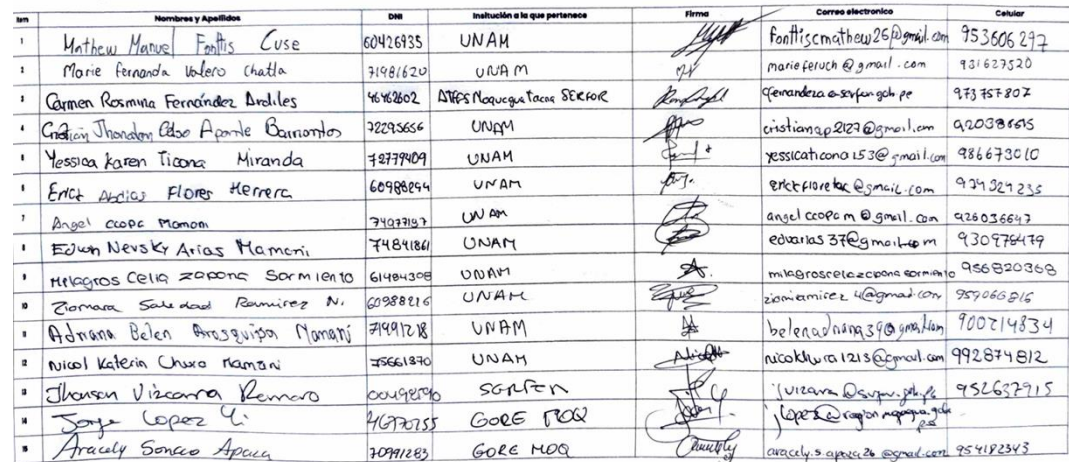 Item Nombres y Apellidos DNI Insitución a la que pertenece Firma Correo electronico Celular
1 Mathew Manuel Fonttis Cuse 60426935 UNAM fonttiscmathew26@gmail.com 953606297
2 Marie fernanda Valero chatla 71981620 UNAM marieferuch@gmail.com 931627520
3 Carmen Rosmina Fernández Ardiles 46462602 ATFFS Moquegua Tacna SERFOR cfernandeza@serfor.gob.pe 973757807
4 Cristian Jhonatan Celso Aparte Barrientos 72295656 UNAM cristianap2127@gmail.com
5 Yessica Karen Ticona Miranda 72779409 UNAM yessicaticona153@gmail.com 986673010
6 Erick Abdias Flores Herrera 60988294 UNAM 934324235
7 Angel ccopa Mamani 74977197 UNAM angelccopam@gmail.com 926036647
8 Edwin Nevsky Arias Mamani 74841861 UNAM edvarias37@gmail.com 930978479
9 Milagros Celia zapana Sarmiento 61484308 UNAM 956820368
10 Ziomara Saledad Ramirez N. 60988216 UNAM 959066816
11 Adriana Belen Arasquipa Mamani 71991218 UNAM belenadriana39@gmail.com 900714834
12 Nicol Katerin Chura Mamani 75661370 UNAM 992874812
13 Jhonson Vizcarra Romero SERFOR 952637915
14 Jorge Lopez Y. GORE MOQ
15 Aracely Soncco Apaza 70991283 GORE MOQ aracely.s.apaza26@gmail.com 954182343